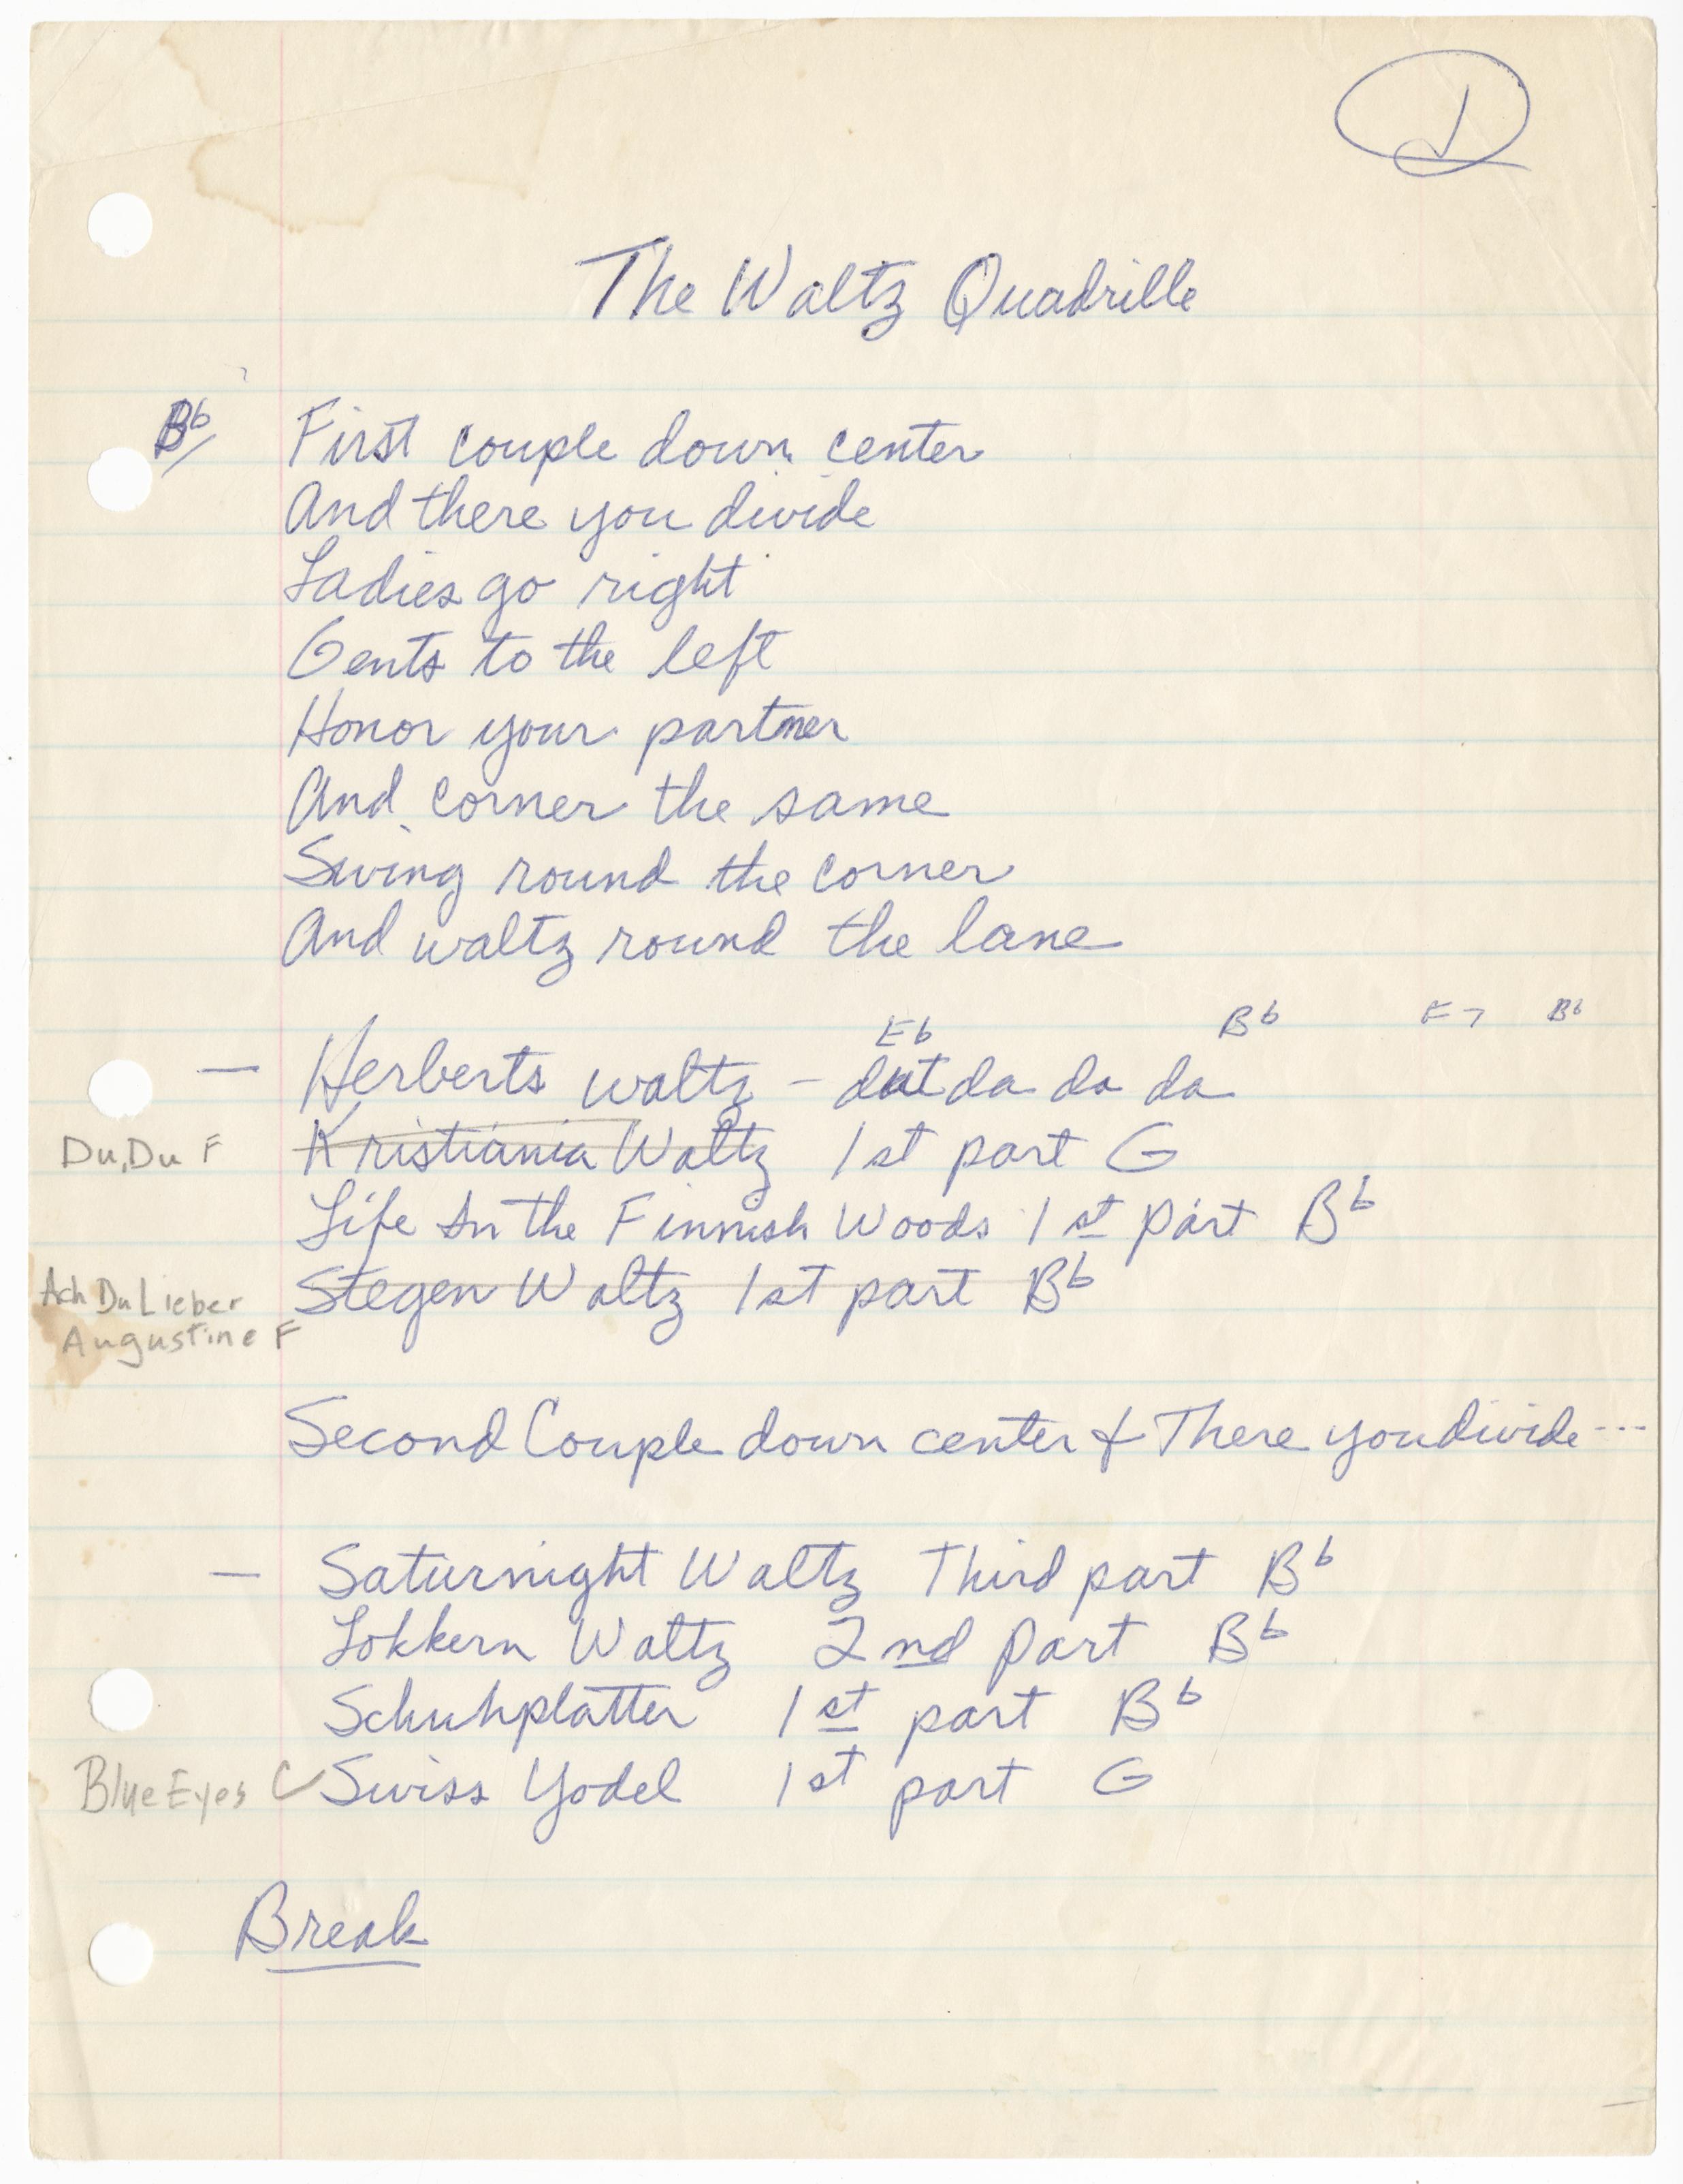 1
The Waltz Quadrille
Bb First couple down center
And there you divide
Ladies go right
Gents to the left
Honor your partner
And corner the same
Swing round the corner
And waltz round the lane
Eb Bb F7 Bb
— Herberts waltz – dat da da da
Du, Du F Kristiania Waltz 1st part G
Life In the Finnish Woods 1st part Bb
Ach Du Lieber Stegen Waltz 1st part Bb
Augustine F
Second Couple down center & There you divide ---
— Saturnight Waltz Third part Bb
Lokkern Waltz 2nd Part Bb
Schuhplatter 1st part Bb
Blue Eyes C Swiss Yodel 1st part G
Break